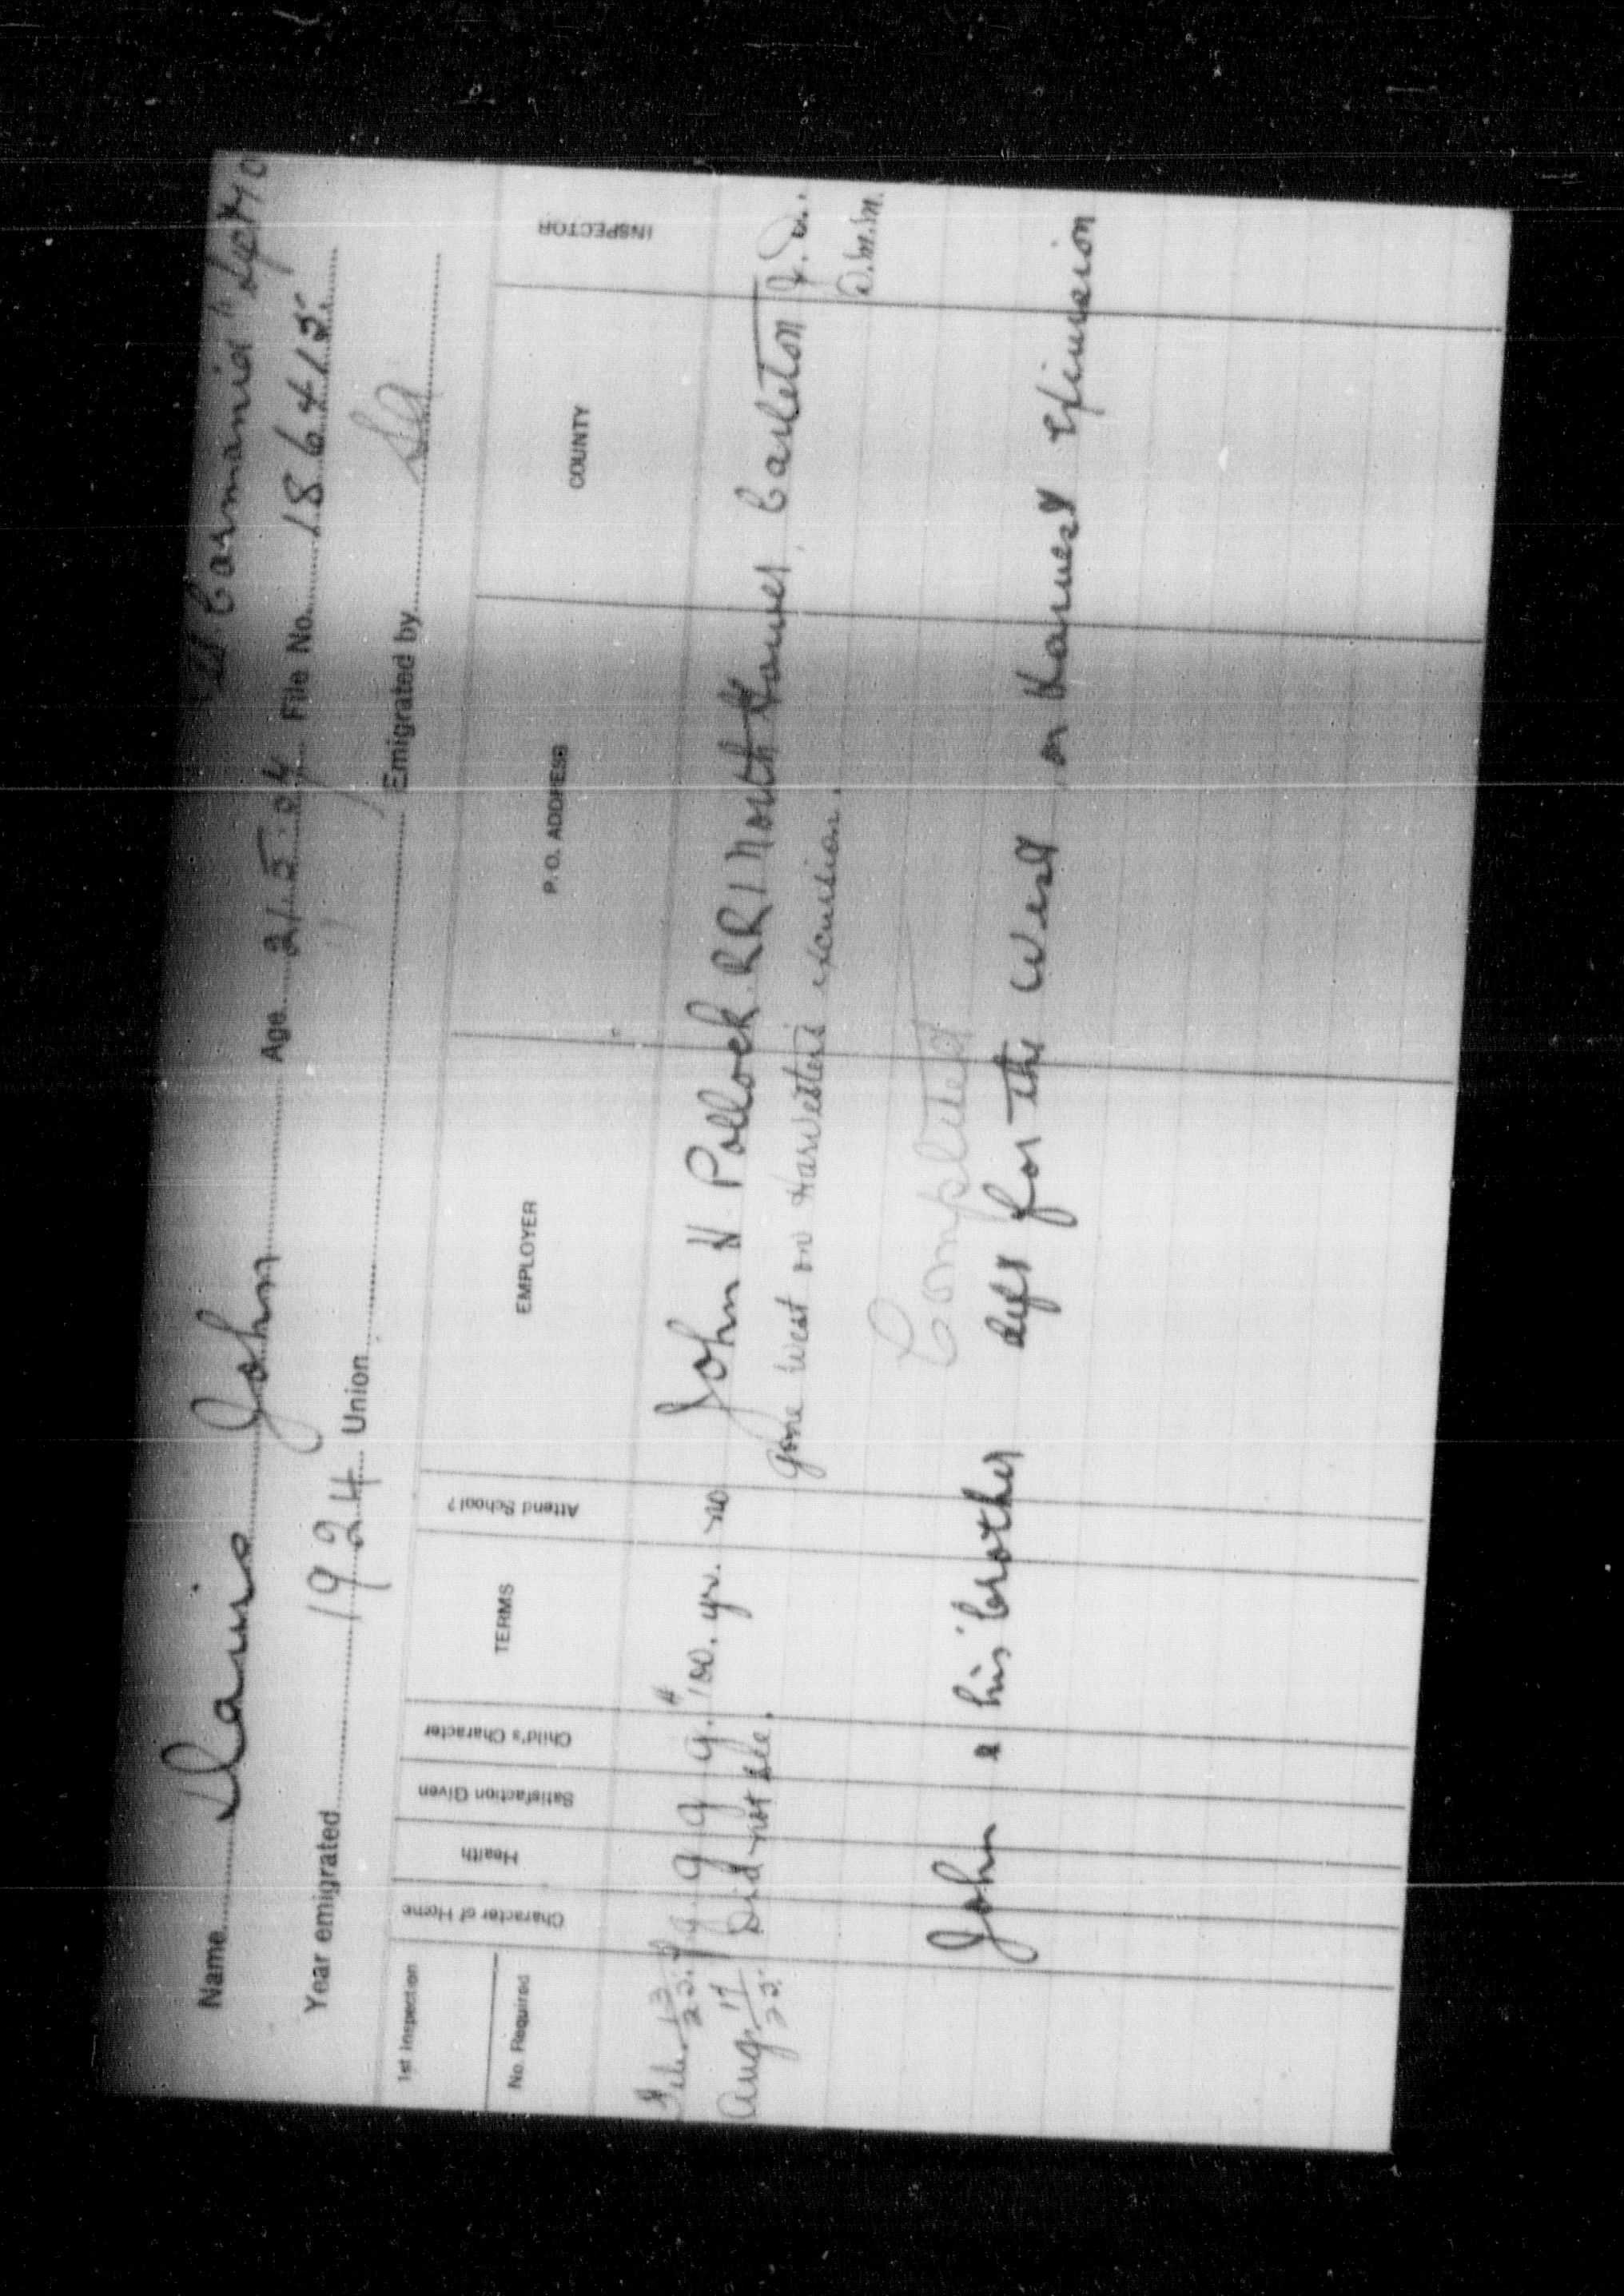 "Carmania" Sept 10
Name Davis John Age 21.5.24 File No. 186415
Year emigrated 1924 Union Emigrated by SA
1st Inspection
No. Required
Character of Home
Health
Satisfaction Given
Child's Character
TERMS
Attend School?
EMPLOYER
P.O. ADDRESS
COUNTY
INSPECTOR
Feb. 13/25. g g g g. $100. yr. no John N Pollock RR1 North Gower, Carleton
Aug. 17/25. Did not see. gone west on Harvesters excursion. D.M.M.
Completed
John & his brother left for the West on Harvest Excursion